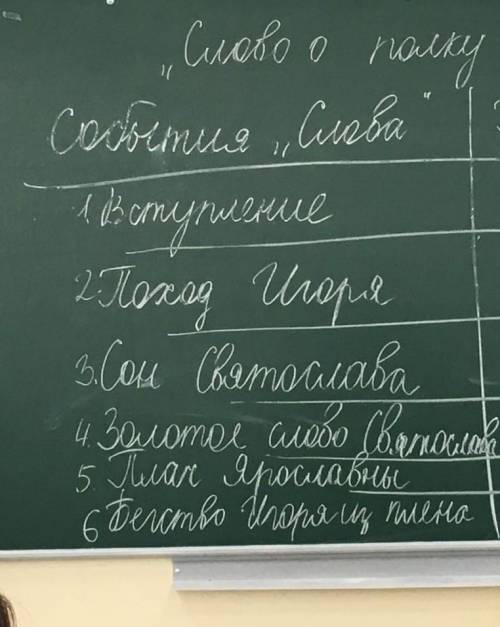 „Слово о полку
События „Слова"
1. Вступление
2. Поход Игоря
3. Сон Святослава
4. Золотое слово Святослава
5. Плач Ярославны
6 Бегство Игоря из плена